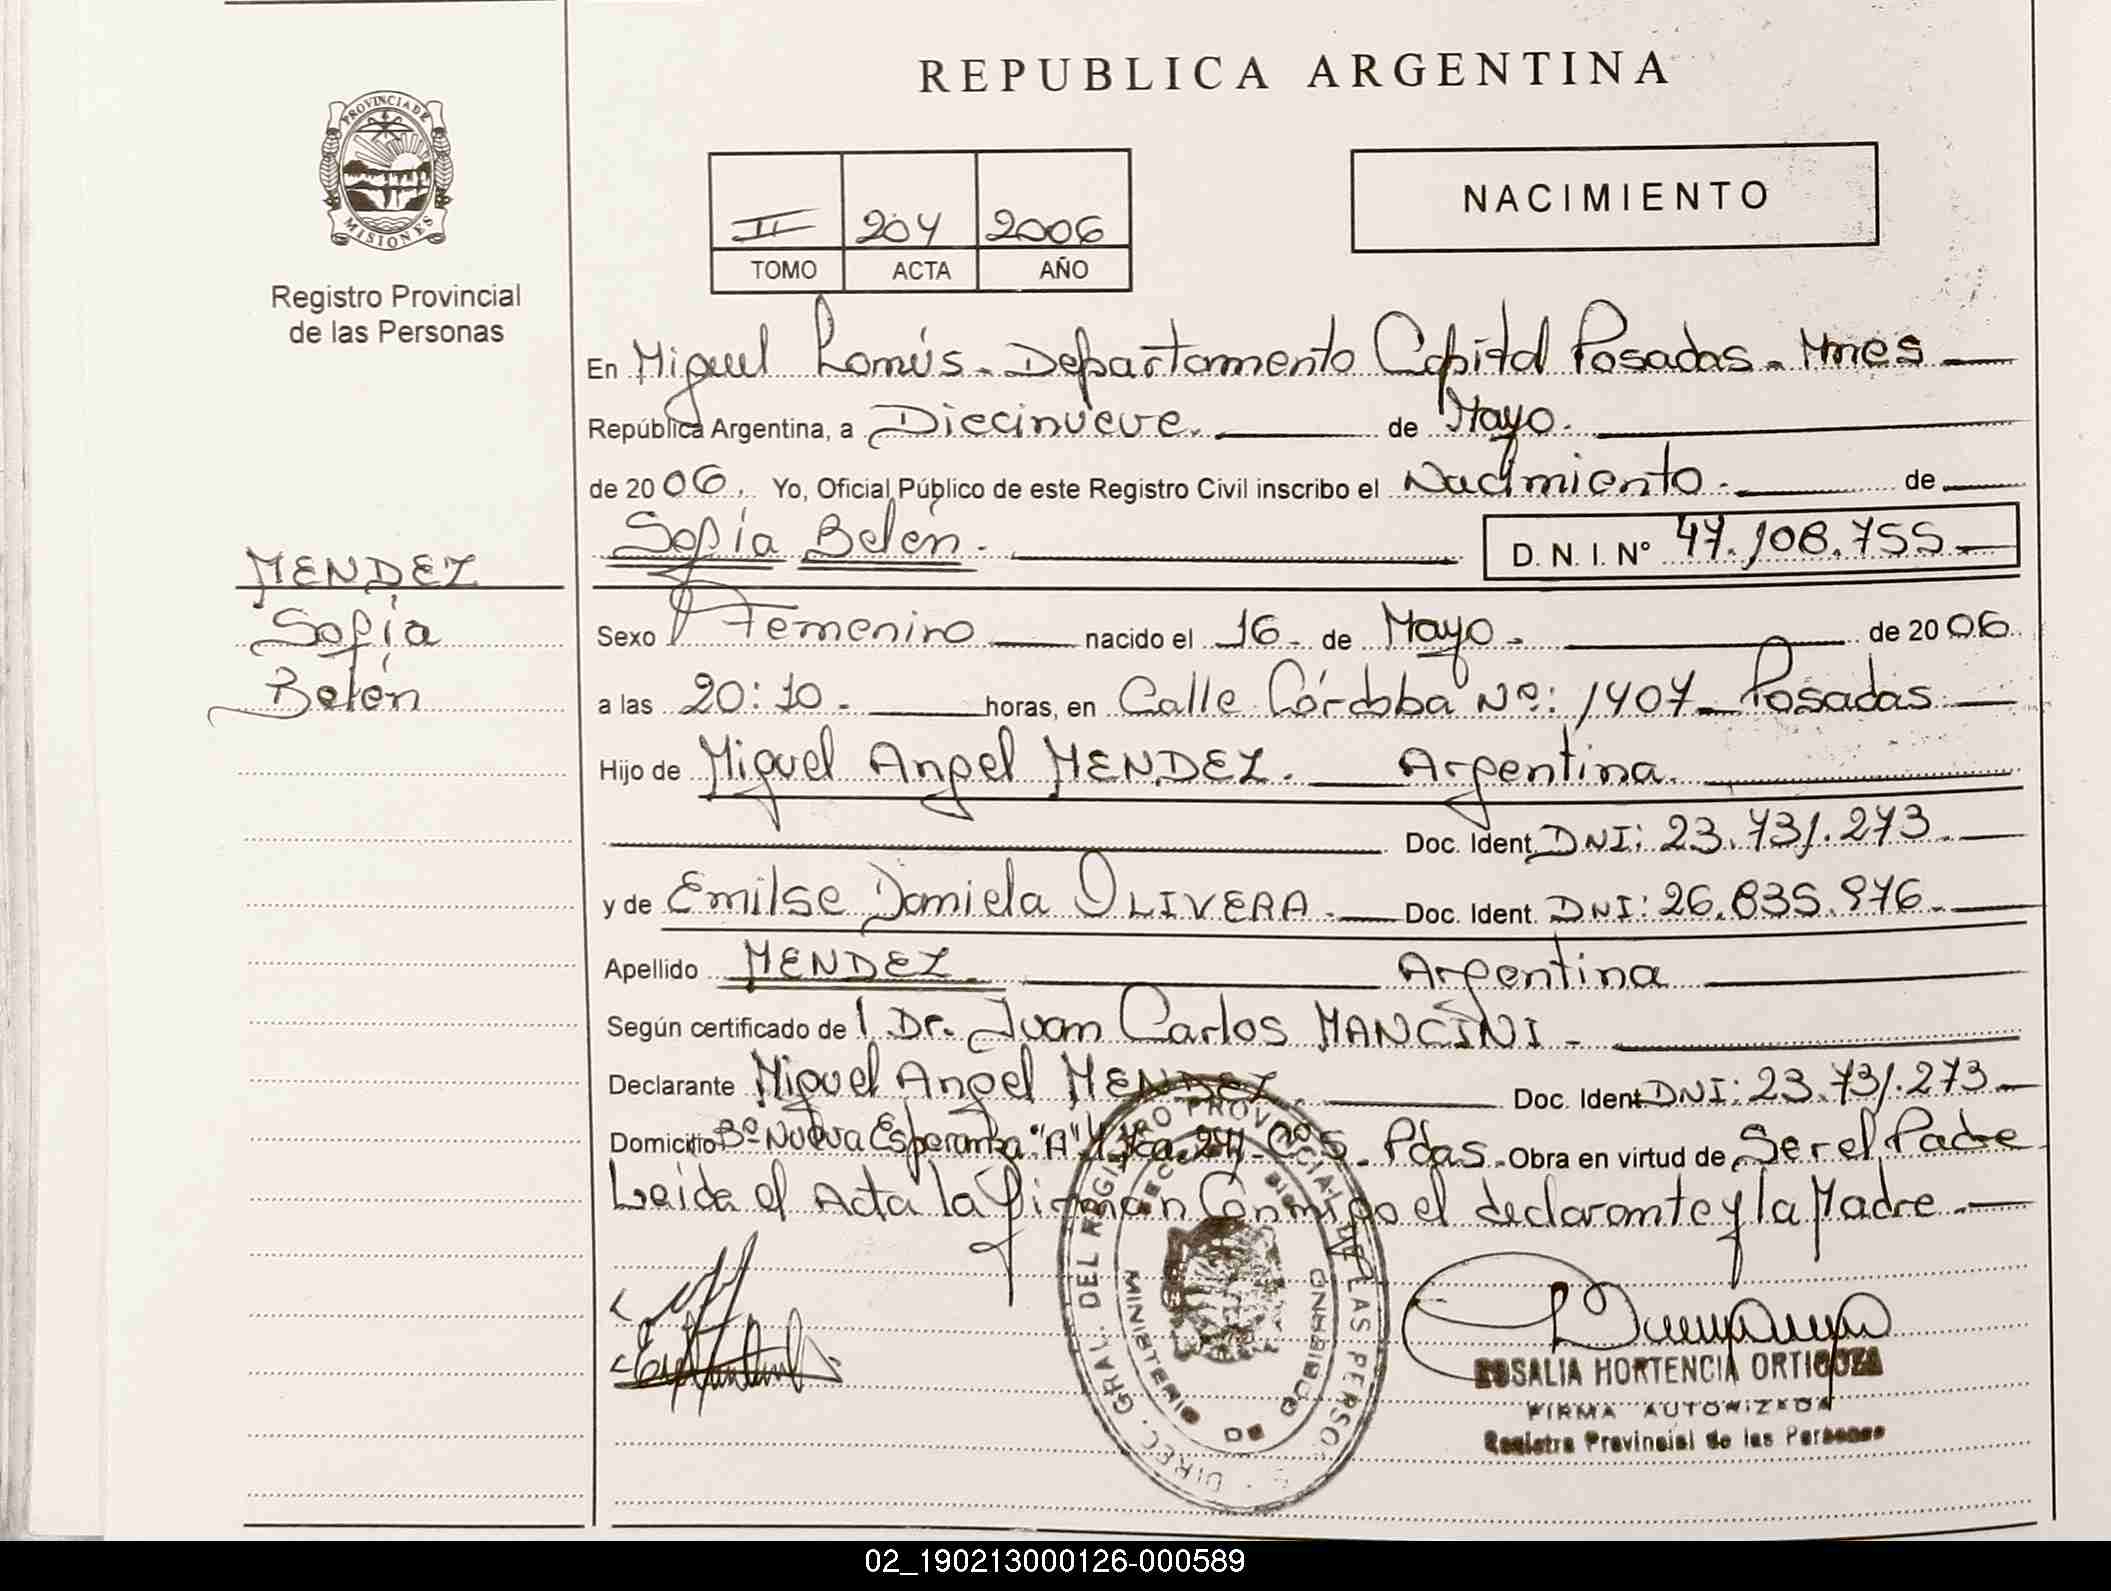 REPUBLICA ARGENTINA
PROVINCIA DE
MISIONES
Registro Provincial
de las Personas
II 204 2006
TOMO ACTA AÑO
NACIMIENTO
En Miguel Lanús - Departamento Capital Posadas - Mnes
República Argentina, a Diecinueve. de Mayo.
de 2006. Yo, Oficial Público de este Registro Civil inscribo el Nacimiento - de
Sofía Belén - D. N. I. Nº 47.108.755
MENDEZ
Sofía
Belén
Sexo Femenino nacido el 16 - de Mayo - de 2006
a las 20:10 - horas, en Calle Córdoba Nº: 1407 - Posadas
Hijo de Miguel Angel MENDEZ. Argentina.
Doc. Ident. DNI: 23.731.273
y de Emilse Daniela OLIVERA - Doc. Ident. DNI: 26.835.976
Apellido MENDEZ Argentina
Según certificado de l Dr. Juan Carlos MANCINI -
Declarante Miguel Angel MENDEZ Doc. Ident. DNI: 23.731.273
Domicilio Bº Nueva Esperanza "A" Cº 5 - Pdas - Obra en virtud de Ser el Padre
Leida el Acta la firman Conmigo el declarante y la Madre -
DIREC. GRAL. DEL REGISTRO PROVINCIAL DE LAS PERSONAS
MINISTERIO DE GOBIERNO
ROSALIA HORTENCIA ORTIGOZA
FIRMA AUTORIZADA
Registro Provincial de las Personas
02_190213000126-000589